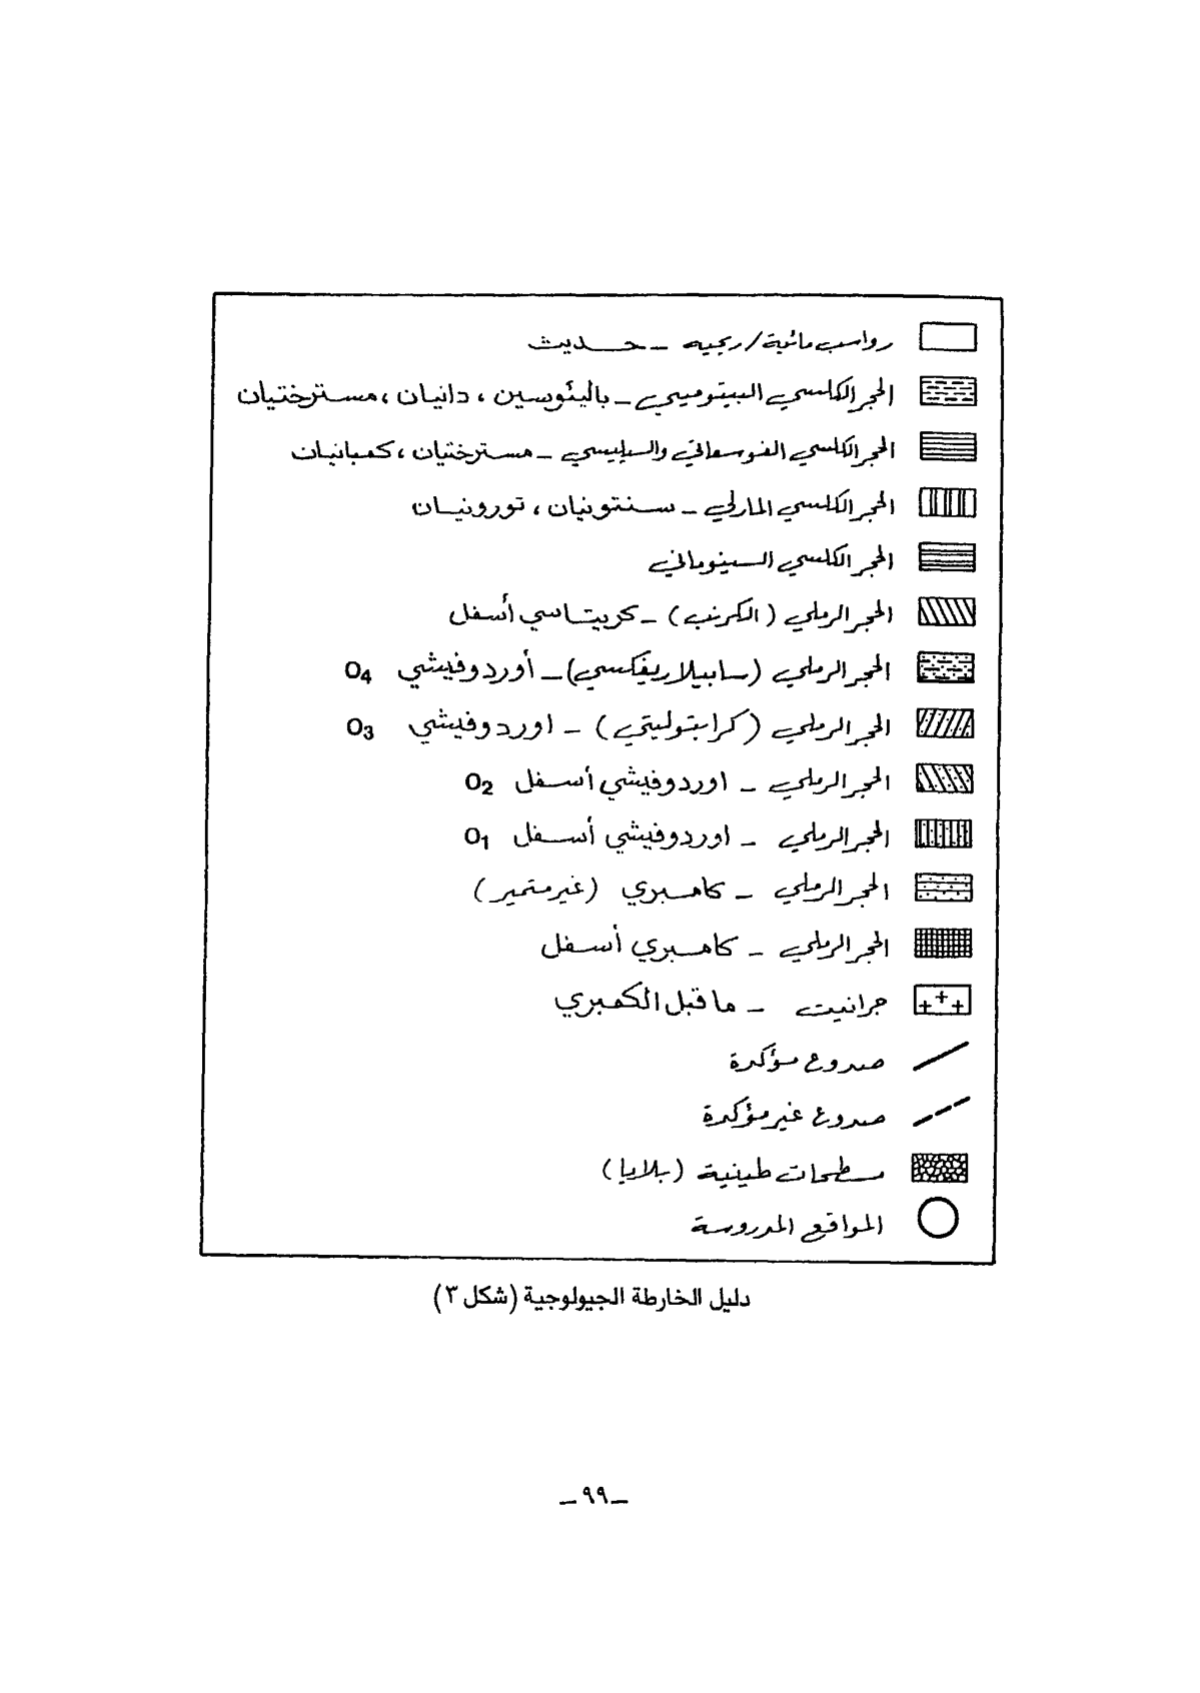 رواسب مائية/ريحيه - حديث
الحجر الكلسي البيتوميني - باليئوسين ، دانيان ، مسترختيان
الحجر الكلسي الفوسفاتي والسيليسي - مسترختيان ، كمبانيان
الحجر الكلسي المارلي - سنتونيان ، تورونيان
الحجر الكلسي السينوماني
الحجر الرملي (الكرنب) - كريتاسي أسفل
الحجر الرملي (سابيلاريفكسي) - أوردوفيشي O4
الحجر الرملي (كرابتوليتي) - اوردوفيشي O3
الحجر الرملي - اوردوفيشي أسفل O2
الحجر الرملي - اوردوفيشي أسفل O1
الحجر الرملي - كامبري (غير متميز)
الحجر الرملي - كامبري أسفل
جرانيت - ما قبل الكمبري
صدوع مؤكدة
صدوع غير مؤكدة
مسطحات طينية (بلايا)
المواقع المدروسة
دليل الخارطة الجيولوجية (شكل ٣)
- ٩٩ -